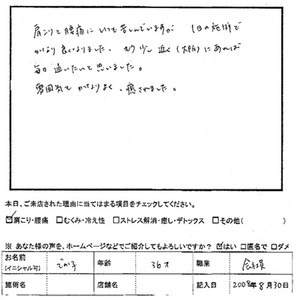 肩こりと腰痛にいつも苦しんでいますが 1日の施術で
かなり良くなりました。もう少し近く(大阪)にあれば
毎日通いたいと思いました。
雰囲気もかなりよく、癒されました。
本日、ご来店された理由に当てはまる項目をチェックしてください。
☑肩こり・腰痛 □むくみ・冷え性 □ストレス解消・癒し・デトックス □その他( )
※ あなた様の声を、ホームページなどでご紹介してもよろしいですか? ☑はい □匿名で □ダメ
お名前 (イニシャル可) 年齢 36才 職業 会社員
施術名 店舗名 記入日 2008年8月30日